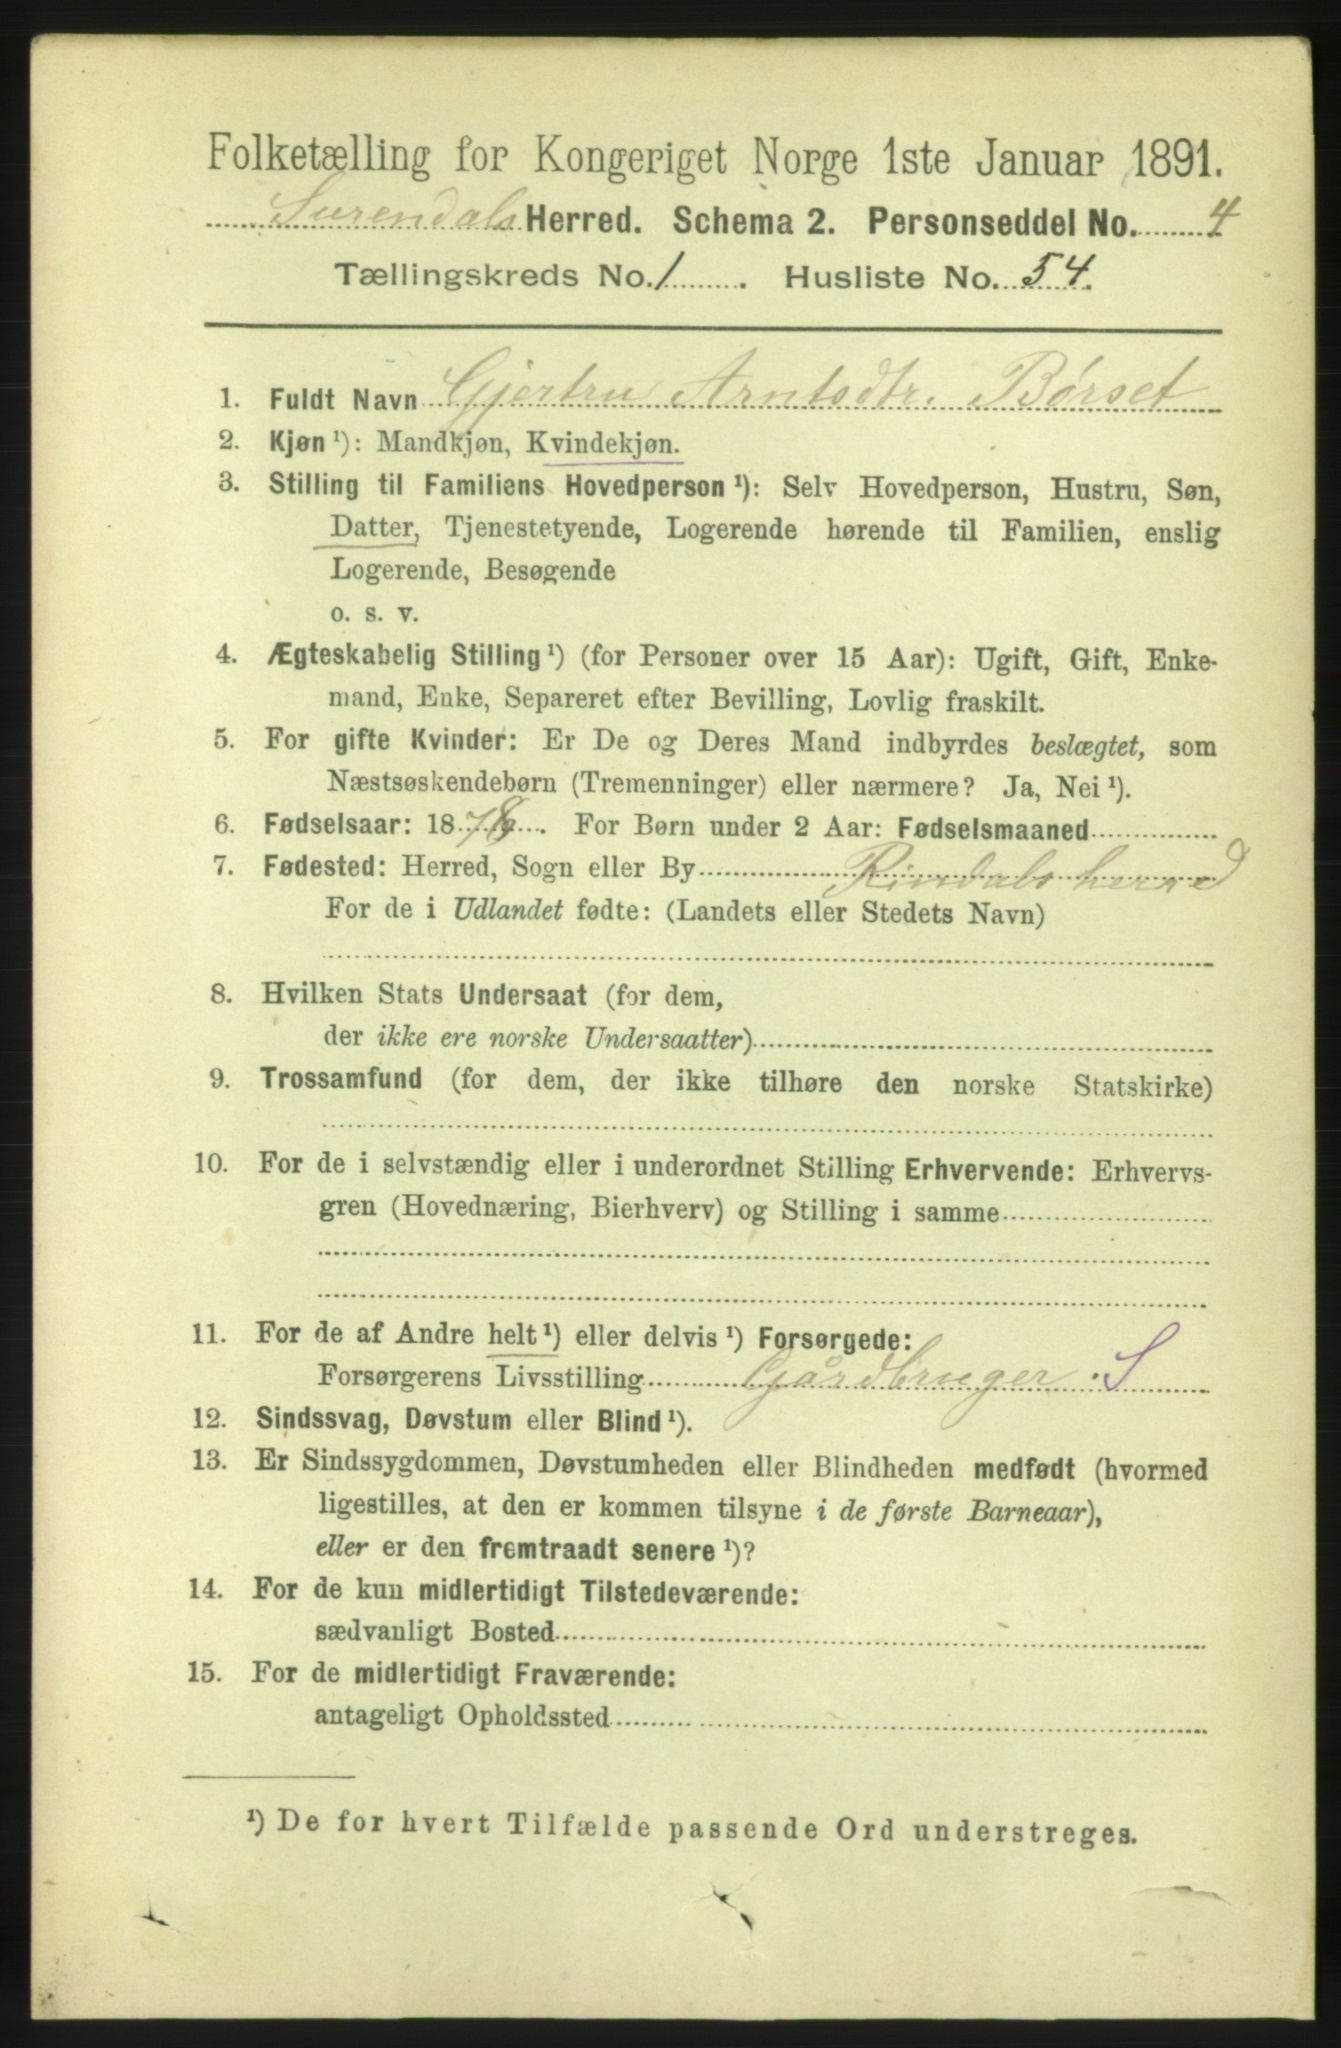 Folketælling for Kongeriget Norge 1ste Januar 1891.
Surendals Herred. Schema 2. Personseddel No. 4
Tællingskreds No. 1. Husliste No. 54.
1. Fuldt Navn Gjertru Arntsdtr. Børset
2. Kjøn ¹): Mandkjøn, Kvindekjøn.
3. Stilling til Familiens Hovedperson ¹): Selv Hovedperson, Hustru, Søn,
Datter, Tjenestetyende, Logerende hørende til Familien, enslig
Logerende, Besøgende
o. s. v.
4. Ægteskabelig Stilling ¹) (for Personer over 15 Aar): Ugift, Gift, Enke-
mand, Enke, Separeret efter Bevilling, Lovlig fraskilt.
5. For gifte Kvinder: Er De og Deres Mand indbyrdes beslægtet, som
Næstsøskendebørn (Tremenninger) eller nærmere? Ja, Nei ¹).
6. Fødselsaar: 187. For Børn under 2 Aar: Fødselsmaaned
7. Fødested: Herred, Sogn eller By Rindals herred
For de i Udlandet fødte: (Landets eller Stedets Navn)
8. Hvilken Stats Undersaat (for dem,
der ikke ere norske Undersaatter)
9. Trossamfund (for dem, der ikke tilhøre den norske Statskirke)
10. For de i selvstændig eller i underordnet Stilling Erhvervende: Erhvervs-
gren (Hovednæring, Bierhverv) og Stilling i samme
11. For de af Andre helt ¹) eller delvis ¹) Forsørgede:
Forsørgerens Livsstilling Gårdbruger. S
12. Sindssvag, Døvstum eller Blind ¹).
13. Er Sindssygdommen, Døvstumheden eller Blindheden medfødt (hvormed
ligestilles, at den er kommen tilsyne i de første Barneaar),
eller er den fremtraadt senere ¹)?
14. For de kun midlertidigt Tilstedeværende:
sædvanligt Bosted
15. For de midlertidigt Fraværende:
antageligt Opholdssted
¹) De for hvert Tilfælde passende Ord understreges.